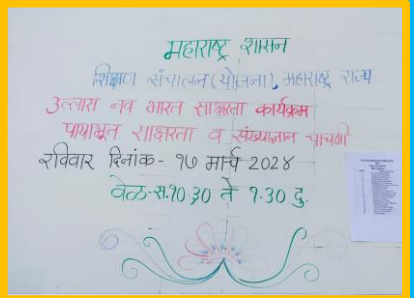 महाराष्ट्र शासन
शिक्षण संचालन (योजना), महाराष्ट्र राज्य
उल्लास नव भारत साक्षरता कार्यक्रम
पायाभूत साक्षरता व संख्याज्ञान चाचणी
रविवार दिनांक - १७ मार्च २०२४
वेळ - स. १०.३० ते १.३० दु.